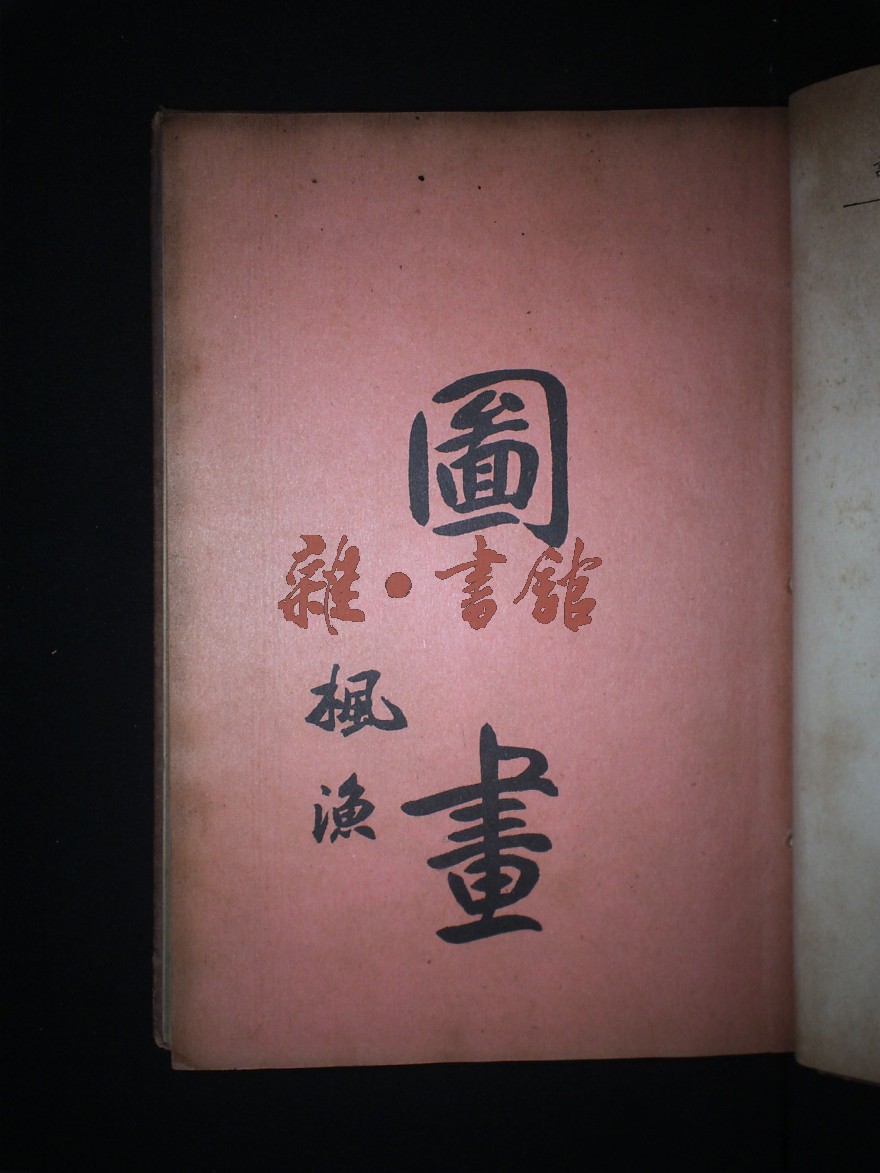 圖畫
雜·書館
楓漁